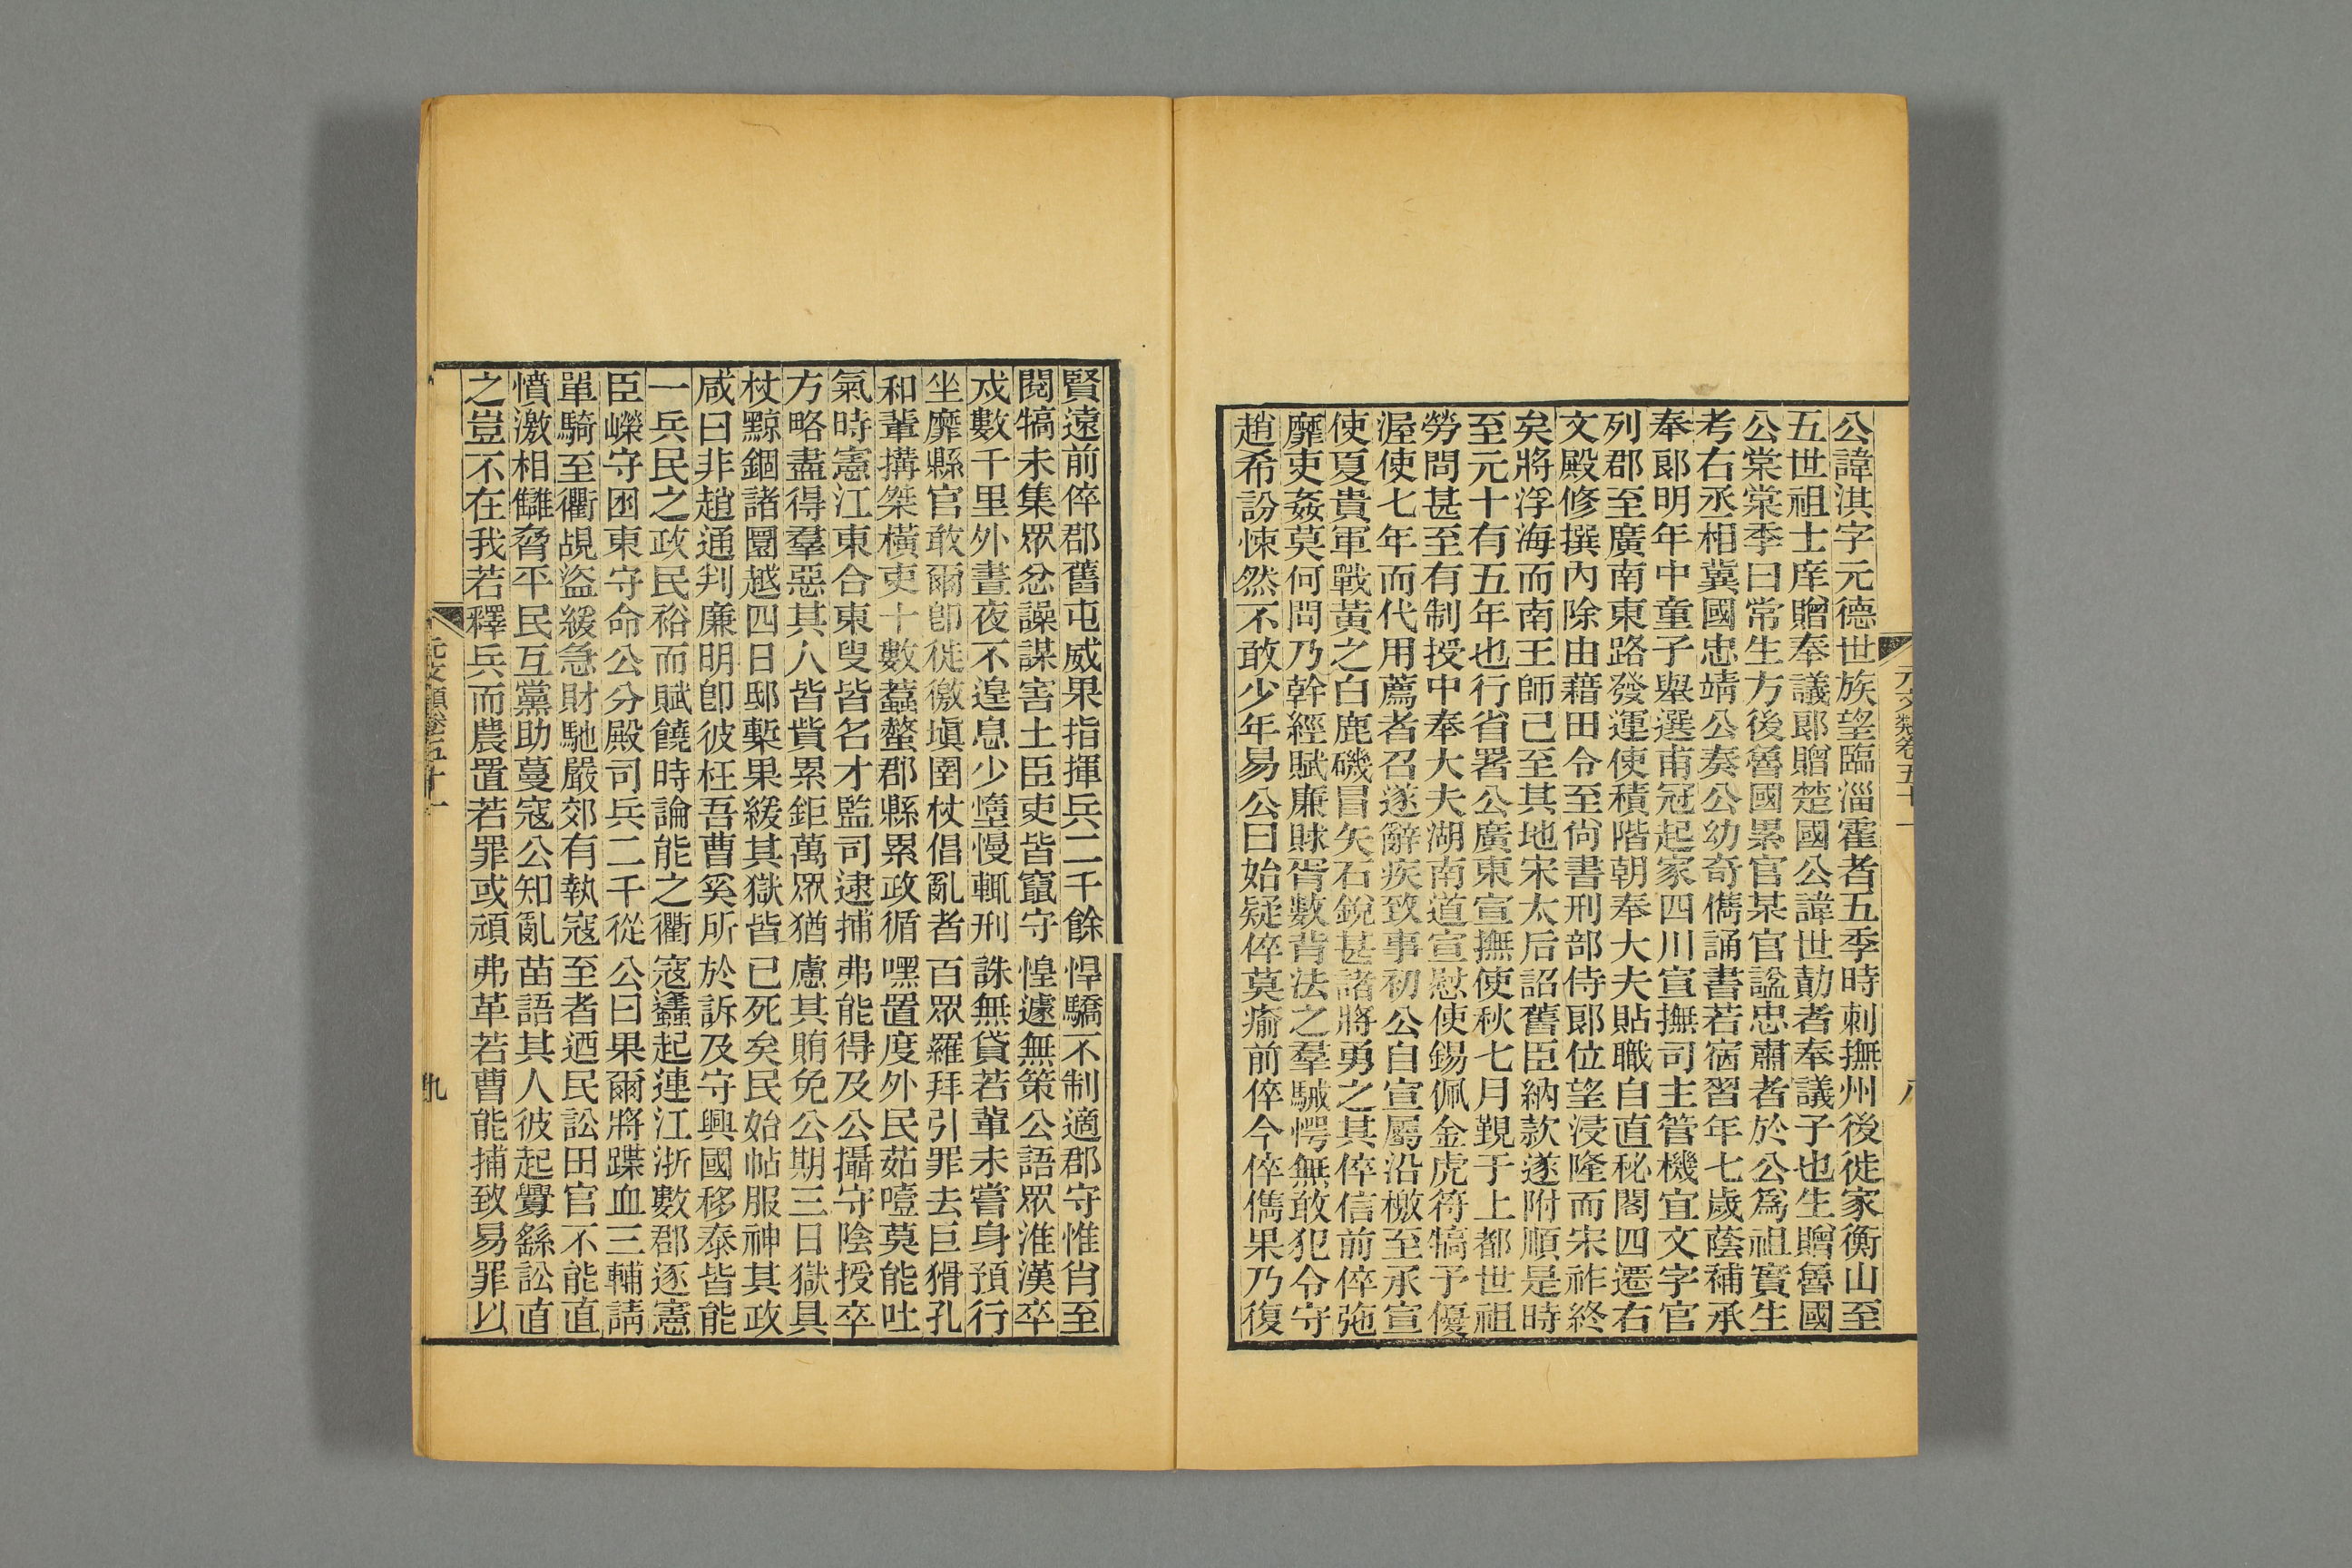 元文類卷五十一
公諱淇字元德世族望臨淄霍者五季時刺撫州後徙家衡山至
五世祖士庠贈奉議郞贈楚國公諱世勣者奉議子也生贈魯國
公棠棠季曰常生方後魯國累官某官諡忠肅者於公爲祖實生
考右丞相冀國忠靖公奏公幼奇儁誦書若宿習年七歲蔭補承
奉郞明年中童子舉選甫冠起家四川宣撫司主管機宜文字官
列郡至廣南東路發運使積階朝奉大夫貼職自直秘閣四遷右
文殿修撰內除由藉田令至尙書刑部侍郞位望浸隆而宋祚終
矣將浮海而南王師已至其地宋太后詔舊臣納款遂附順是時
至元十有五年也行省署公廣東宣撫使秋七月覲于上都世祖
勞問甚至有制授中奉大夫湖南道宣慰使錫佩金虎符犒予優
渥使七年而代用薦者召遂辭疾致事初公自宣屬沿檄至承宣
使夏貴軍戰黃之白鹿磯冒矢石銳甚諸將勇之其倅信前倅弛
靡吏姦莫何問乃幹經賦廉賕胥數背法之羣駴愕無敢犯令守
趙希訜悚然不敢少年易公曰始疑倅莫瘉前倅今倅儁果乃復
賢遠前倅郡舊屯威果指揮兵二千餘悍驕不制適郡守惟肖至
閱犒未集眾忿譟謀害土臣吏皆竄守惶遽無策公語眾淮漢卒
戍數千里外晝夜不遑息少墮慢輒刑誅無貸若輩未嘗身預行
坐靡縣官敢爾卽徙徼塡圉杖倡亂者百眾羅拜引罪去巨猾孔
和輩搆桀橫吏十數蠚螫郡縣累政循嘿置度外民茹噎莫能吐
氣時憲江東合東叟皆名才監司逮捕弗能得及公攝守陰授卒
方略盡得羣惡其人皆貲累鉅萬眾猶慮其賄免公期三日獄具
杖黥錮諸圜越四日邸槧果緩其獄皆已死矣民始帖服神其政
咸曰非趙通判廉明卽彼枉吾曹奚所於訴及守興國移泰皆能
一兵民之政民裕而賦饒時論能之衢寇蠭起連江浙數郡逐憲
臣嶸守囦東守命公分殿司兵二千從公曰果爾將蹀血三輔請
單騎至衢覘盜緩急財馳嚴郊有執寇至者迺民訟田官不能直
憤激相讎脅平民互黨助蔓寇公知亂苗語其人彼起釁繇訟直
之豈不在我若釋兵而農置若罪或頑弗革若曹能捕致易罪以
九